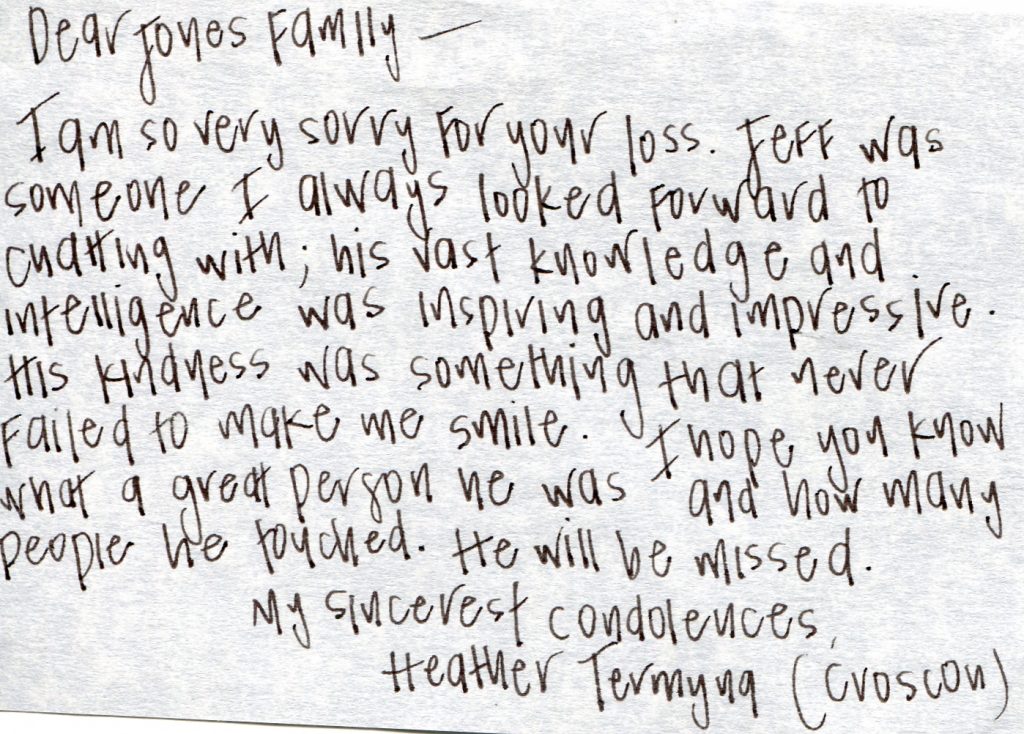 Dear Jones Family —
I am so very sorry for your loss. Jeff was
someone I always looked forward to
chatting with; his vast knowledge and
intelligence was inspiring and impressive.
His kindness was something that never
failed to make me smile. I hope you know
what a great person he was and how many
people he touched. He will be missed.
My sincerest condolences,
Heather Termyna (Croscon)